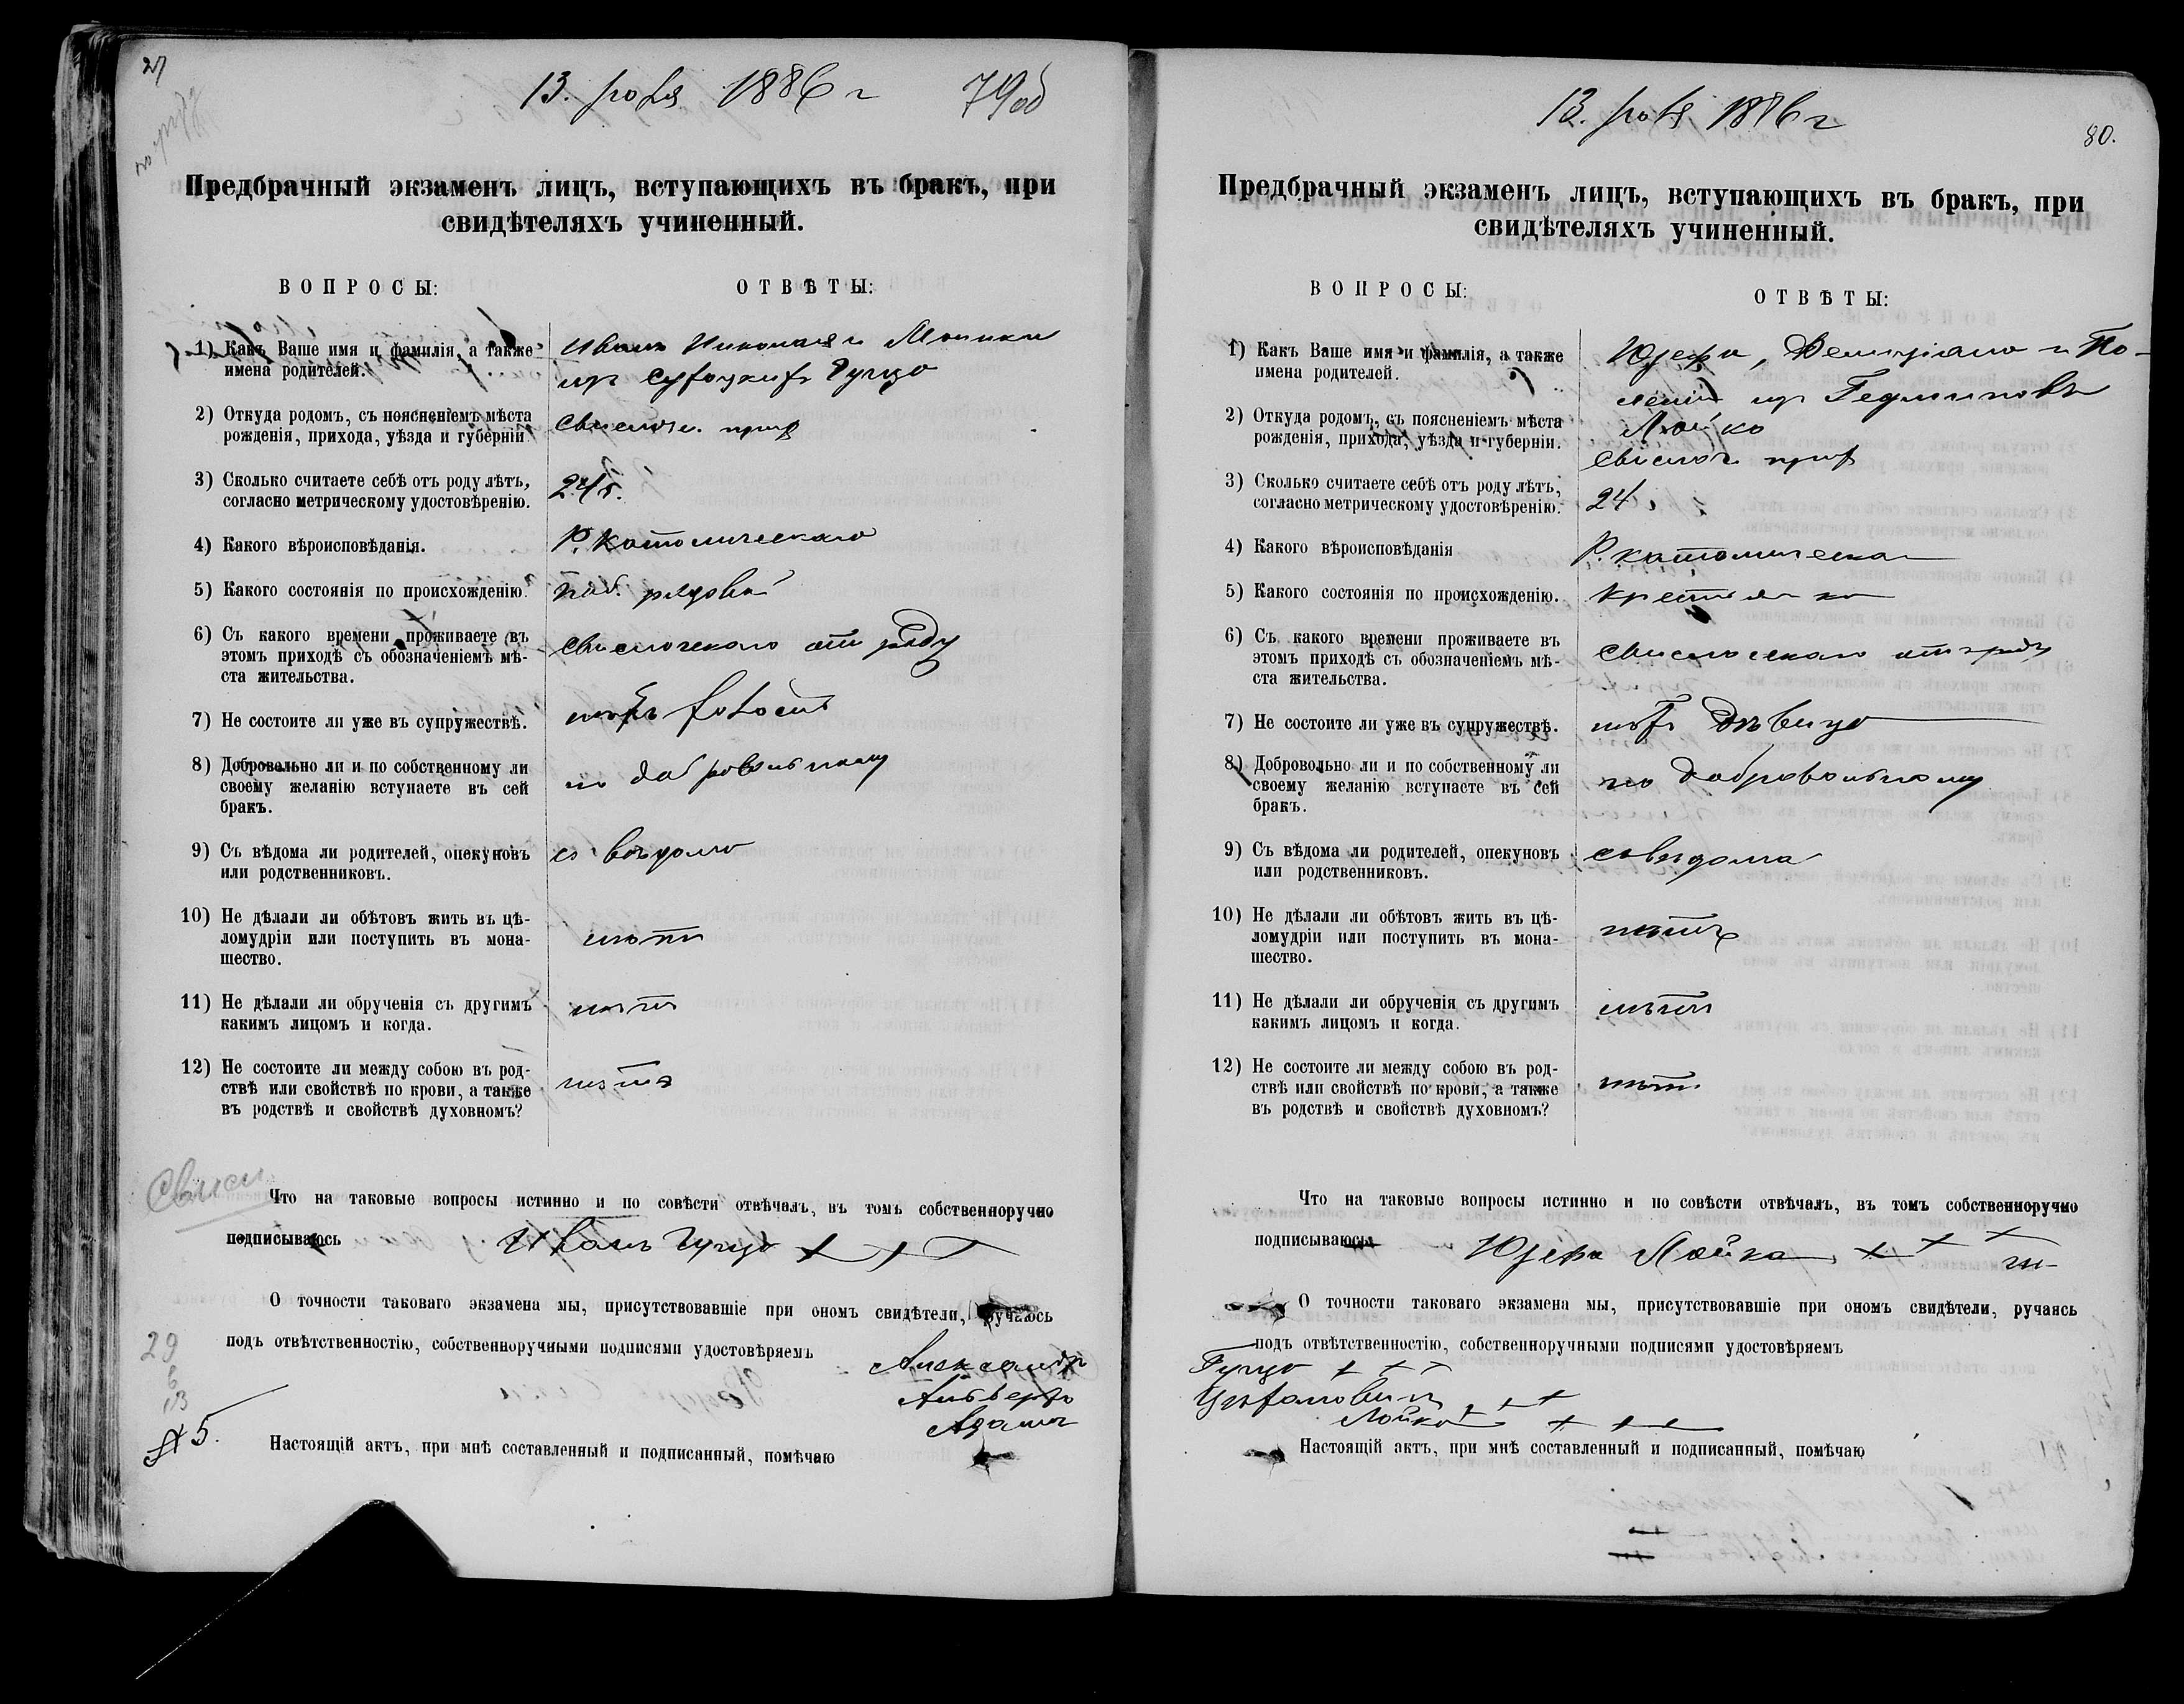 27
13. 1886 г
79об
Предбрачный экзаменъ лицъ, вступающихъ въ бракъ, при
свидѣтеляхъ учиненный.
ВОПРОСЫ:
ОТВѢТЫ:
1) Какъ Ваше имя и фамилія, а также
имена родителей.
Иванъ Николая и Моники
Гуцко
2) Откуда родомъ, съ поясненіемъ мѣста
рожденія, прихода, уѣзда и губерніи
Свислоч. прих
3) Сколько считаете себѣ отъ роду лѣтъ,
согласно метрическому удостовѣренію.
4) Какого вѣроисповѣданія.
Р. Католическаго
5) Какого состоянія по происхожденію.
рядовой
6) Съ какого времени проживаете въ
этомъ приходѣ съ обозначеніемъ мѣ-
ста жительства.
Свислочскаго отъ роду
7) Не состоите ли уже въ супружествѣ.
нѣтъ холостъ
8) Добровольно ли и по собственному ли
своему желанію вступаете въ сей
бракъ.
по добровольному
9) Съ вѣдома ли родителей, опекуновъ
или родственниковъ.
съ вѣдома
10) Не дѣлали ли обѣтовъ жить въ цѣ-
ломудріи или поступить въ мона-
шество.
нѣтъ
11) Не дѣлали ли обрученія съ другимъ
какимъ лицомъ и когда.
нѣтъ
12) Не состоите ли между собою въ род-
ствѣ или свойствѣ по крови, а также
въ родствѣ и свойствѣ духовномъ?
нѣтъ
Свисл
Что на таковые вопросы истинно и по совѣсти отвѣчалъ, въ томъ собственноручно
подписываюсь
Иванъ Гуцко + + +
О точности таковаго экзамена мы, присутствовавшіе при ономъ свидѣтели, ручаясь
подъ отвѣтственностію, собственноручными подписями удостовѣряемъ
Александр
Альберт
Адамъ
29
6
13
5.
Настоящій актъ, при мнѣ составленный и подписанный, помѣчаю
13. 1886 г
80.
Предбрачный экзаменъ лицъ, вступающихъ въ бракъ, при
свидѣтеляхъ учиненный.
ВОПРОСЫ:
ОТВѢТЫ:
1) Какъ Ваше имя и фамилія, а также
имена родителей.
Юзефа, Фелиціана и По-
леніи изъ
Лойко
2) Откуда родомъ, съ поясненіемъ мѣста
рожденія, прихода, уѣзда и губерніи.
Свислоч прих
3) Сколько считаете себѣ отъ роду лѣтъ,
согласно метрическому удостовѣренію.
24
4) Какого вѣроисповѣданія
Р. католическаго
5) Какого состоянія по происхожденію.
крестьянка
6) Съ какого времени проживаете въ
этомъ приходѣ съ обозначеніемъ мѣ-
ста жительства.
Свислочскаго отъ роду
7) Не состоите ли уже въ супружествѣ.
нѣтъ дѣвица
8) Добровольно ли и по собственному ли
своему желанію вступаете въ сей
бракъ.
по добровольному
9) Съ вѣдома ли родителей, опекуновъ
или родственниковъ.
съ вѣдома
10) Не дѣлали ли обѣтовъ жить въ цѣ-
ломудріи или поступить въ мона-
шество.
нѣтъ
11) Не дѣлали ли обрученія съ другимъ
какимъ лицомъ и когда.
нѣтъ
12) Не состоите ли между собою въ род-
ствѣ или свойствѣ по крови, а также
въ родствѣ и свойствѣ духовномъ?
нѣтъ
Что на таковые вопросы истинно и по совѣсти отвѣчалъ, въ томъ собственноручно
подписываюсь
Юзефа Лойка + + +
О точности таковаго экзамена мы, присутствовавшіе при ономъ свидѣтели, ручаясь
подъ отвѣтственностію, собственноручными подписями удостовѣряемъ
Гуцко + + +
+ + +
Лойко + + +
Настоящій актъ, при мнѣ составленный и подписанный, помѣчаю